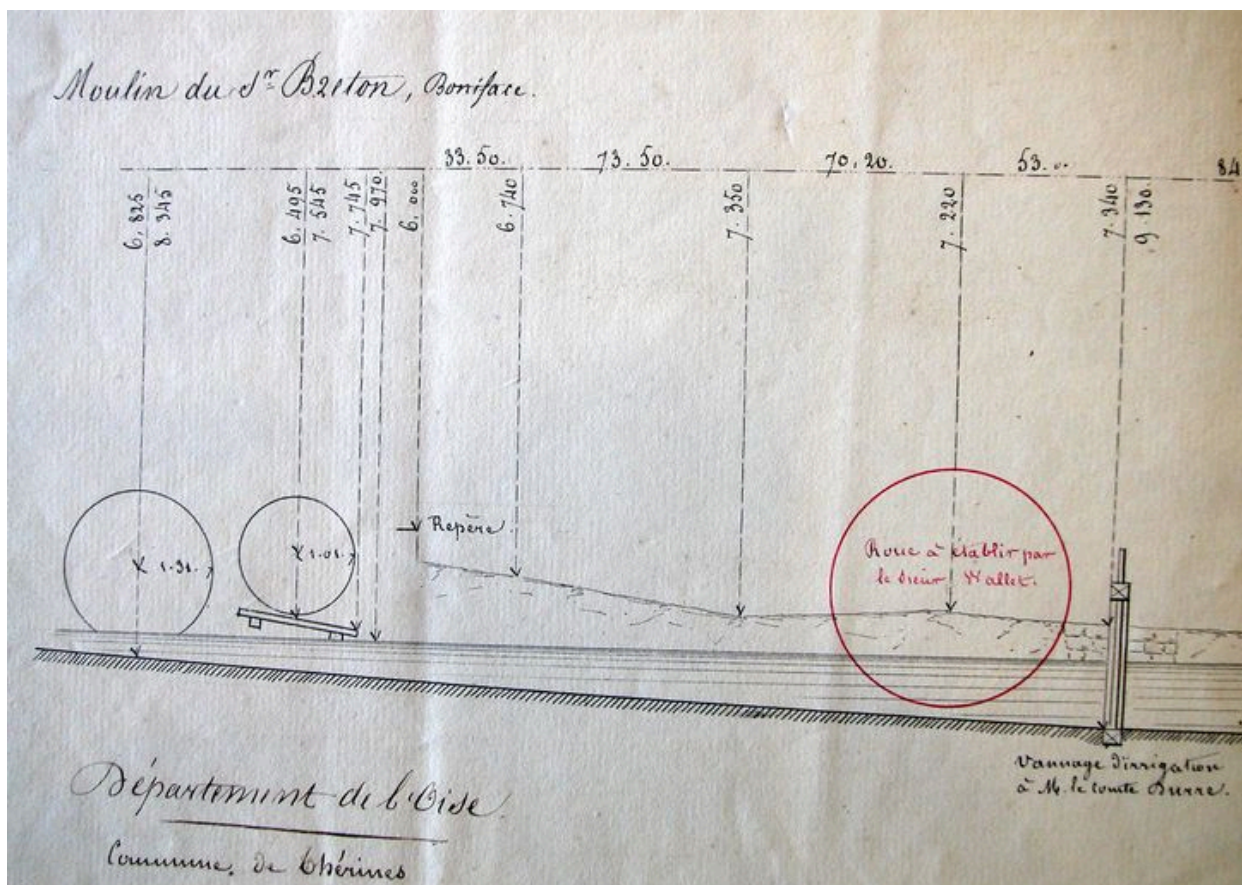 Moulin du Sr Breton, Boniface.
33.50. 73.50. 70.20. 53.00 84
6,825
8.345
6.495
7.545
7.745
7.970.
6.000
6.740
7.350
7.220
7.340
9.130.
1.31.
1.01.
Repère
Roue à établir par
le sieur Wallet.
Vannage d'irrigation
à M. le comte Durre.
Département de l'Oise.
Commune de Thérines